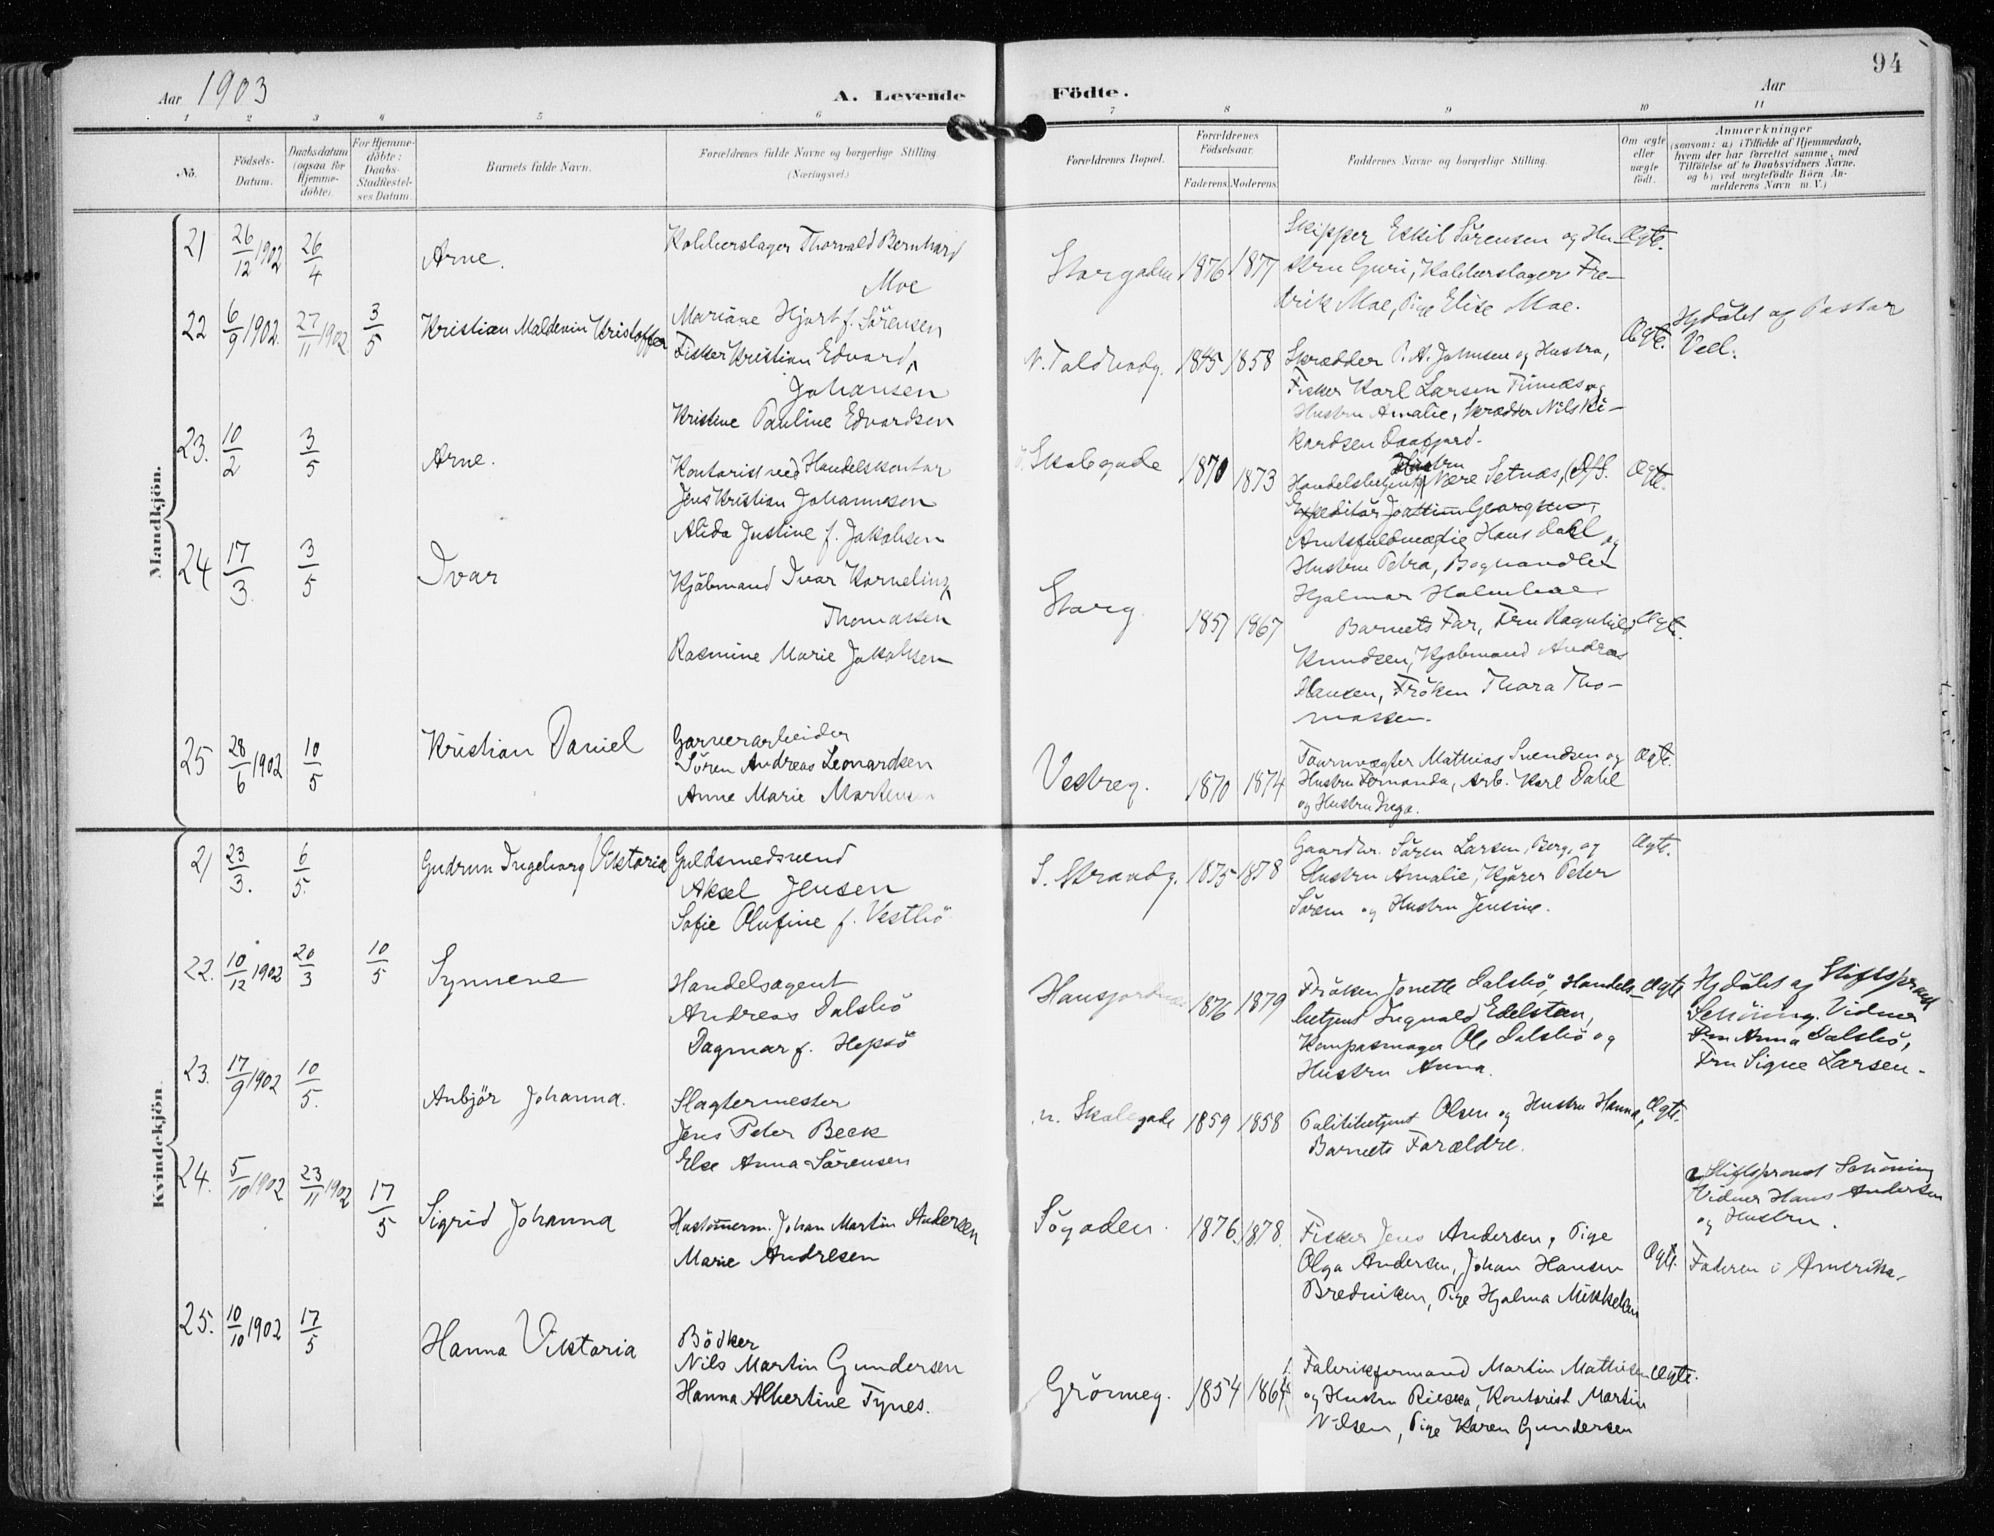 94
Aar 1903
A. Levende Födte.
Aar
1 2 3 4 5 6 7 8 9 10 11
No.
Födsels-
Datum.
Daabsdatum
(ogsaa for
Hjemme-
döbte).
For Hjemme-
döbte:
Daabs-
Stadfæstel-
ses Datum.
Barnets fulde Navn.
Forældrenes fulde Navne og borgerlige Stilling
(Næringsvei.)
Forældrenes Bopæl.
Forældrenes
Födselsaar.
Faderens. Moderens.
Faddernes Navne og borgerlige Stilling.
Om ægte
eller
uægte
födt.
Anmærkninger
(saasom: a) i Tilfælde af Hjemmedaab,
hvem der har forrettet samme, med
Tilföielse af to Daabsvidners Navne,
og b) ved uægtefödte Börn An-
melderens Navn m. V.)
Mandkjön.
21 26/12 1902 26/4 Arne.
Kobberslager Thorvald Bernhard
Moe
Mariane Hjort f. Sörensen
Storgaden 1876 1877
Skipper Eskil Sörensen og Hu-
stru Guri, Kobberslager Fre-
drik Moe, Pige Elise Moe.
Ægte.
22 6/9 1902. 27/11 1902 3/5 Kristian Maldevin Kristoffer
Fisker Kristian Edvard
Johansen
Kristine Pauline Edvardsen
N. Toldbodg. 1845 1858
Skrædder P. A. Johnsen og Hustru,
Fisker Karl Larsen Tunæs og
Hustru Amalie, Skrædder Nils Ri-
kardsen
Ægte.
Hjdöbt af Pastor
Vell.
23. 10/2 3/5 Arne.
Kontorist ved Handelskontor
Jens Kristian Johannesen
Alida Justine f. Jakobsen
Skolegade 1870 1873
Handelsbetjent Nære Setnæs,
Expeditör Joakim Georgsen,
Amtsfuldmægtig Hans Dahl og
Hustru Petra, Boghandler
Hjalmar Holmboe
Ægte.
24 17/3. 3/5 Ivar
Kjöbmand Ivar Kornelius
Thomassen
Rasmine Marie Jakobsen
Storg. 1857 1867
Barnets Far, Fru Ragnhild
Knudsen, Kjöbmand Andreas
Hansen, Fröken Thora Tho-
massen.
Ægte.
25 28/6 1902 10/5 Kristian Daniel
Garverarbeider
Sören Andreas Leonardsen
Anne Marie Martensen
Vestreg. 1870 1874
Taarnvægter Mathias Svendsen og
Hustru Fernanda, Arb. Karl Dahl
og Hustru Inga.
Ægte.
Kvindekjön.
21 23/3. 6/5. Gudrun Ingeborg Viktoria
Guldsmedsvend
Aksel Jensen
Sofie Olufine f. Vestbö
S. Strandg. 1875 1878
Gaardbr. Sören Larsen, Berg, og
Hustru Amalie, Kjörer Peter
Sören og Hustru Jensine.
Ægte.
22. 10/12 1902 20/3 10/5 Synneve
Handelsagent
Andreas Dalsbö
Dagmar f. Hopsö
Hansjordnes 1876 1879
Fröken Jonette Dalsbö, Handels-
betjent Ingvald Edelsteen,
Kompasmager Ole Dalsbö og
Hustru Anna.
Ægte
Hjdöbt af Stiftsprovst
Schöning. Vidner
Fru Anna Dalsbö,
Fru Signe Larsen.
23. 17/9 1902 10/5. Anbjör Johanna.
Slagtermester
Jens Peter Beck
Else Anna Sörensen
n. Skolegade 1859 1858
Politibetjent Olsen og Hustru Hanna,
Barnets Forældre.
Ægte.
24. 5/10 1902 23/11 1902 17/5 Sigrid Johanna
Hustömerm. Johan Martin Andersen
Marie Andresen
Sögaden. 1876. 1878.
Fisker Jens Andersen, Pige
Olga Andersen, Johan Hansen
Bredviken, Pige Hjalma Mikkelsen
Ægte.
Stiftsprovst Schöning
Vidner Hans Andersen
og Hustru.
Faderen i Amerika.
25. 10/10 1902 17/5 Hanna Viktoria
Bödker
Nils Martin Gundersen
Hanna Albertine Tynes.
Grönneg. 1854 1864
Fabrikformand Martin Mathisen
og Hustru Rikka, Kontorist Martin
Nilsen, Pige Karen Gundersen
Ægte.